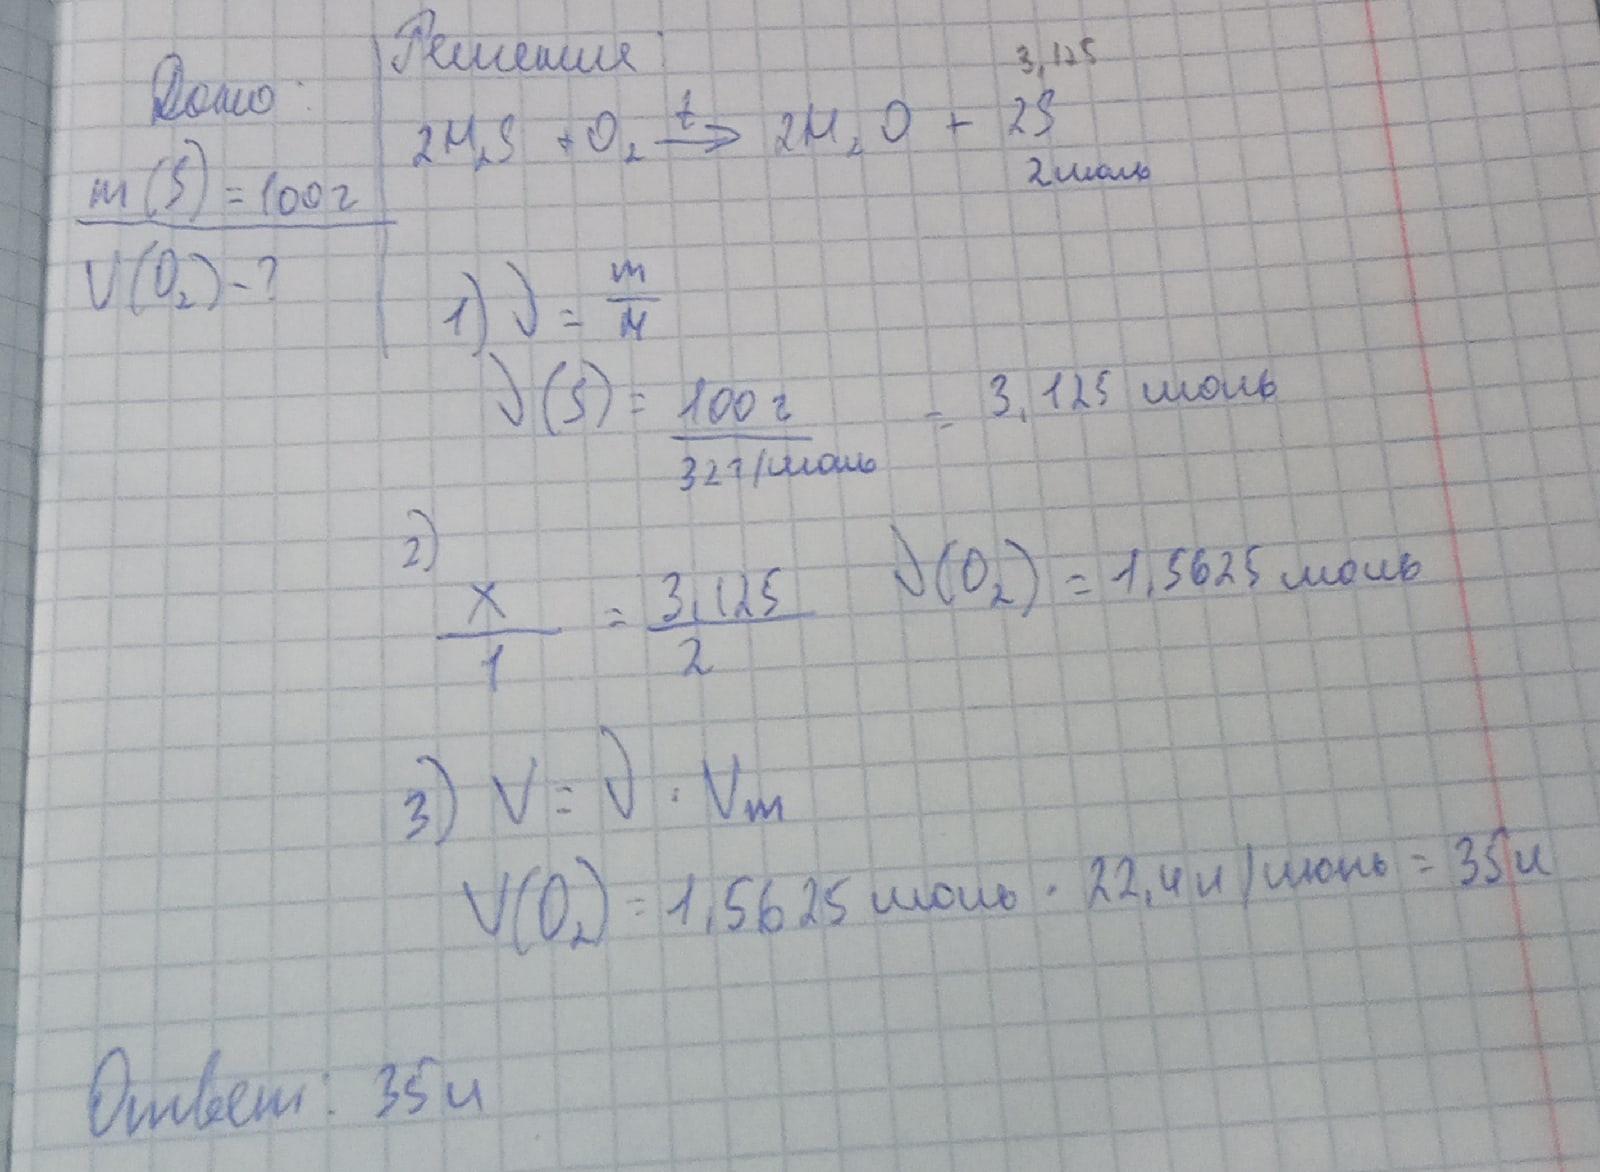 Дано:
m(S) = 100г
V(O₂) - ?
Решение:
3,125
2H₂S + O₂ t→ 2H₂O + 2S
2моль
1) ν = m/M
ν(S) = 100г / 32г/моль = 3,125 моль
2) x/1 = 3,125/2 ν(O₂) = 1,5625 моль
3) V = ν · Vm
V(O₂) = 1,5625 моль · 22,4л/моль = 35л
Ответ: 35л